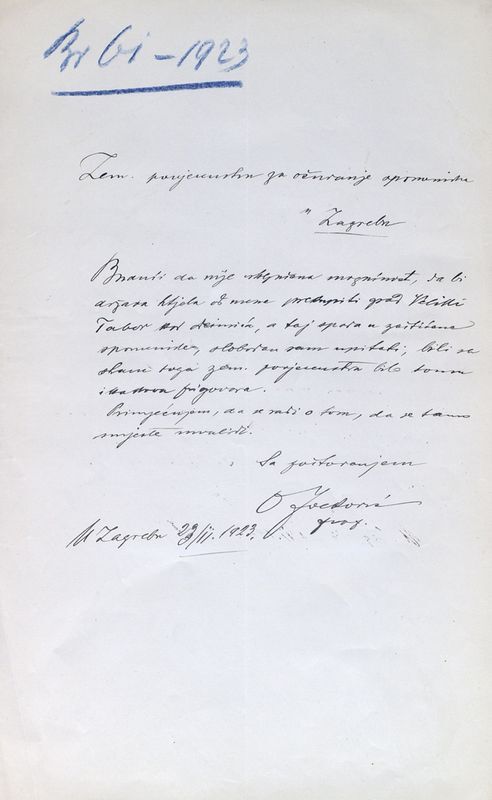 Br 61 – 1923
Zem. povjerenstvu za očuvanje spomenika
u Zagrebu
Budući da nije isključena mogućnost, da bi
država htjela od mene prekupiti grad Veliki
Tabor kod Desinića, a taj spada u zaštićene
spomenike, slobodan sam upitati, bi li sa
strane toga zem. povjerenstva bilo tomu
prigovora.
Primjećujem, da se radi o tom, da se tamo
smjeste invalidi.
Sa poštovanjem
O Iveković
prof.
U Zagrebu 23/II. 1923.